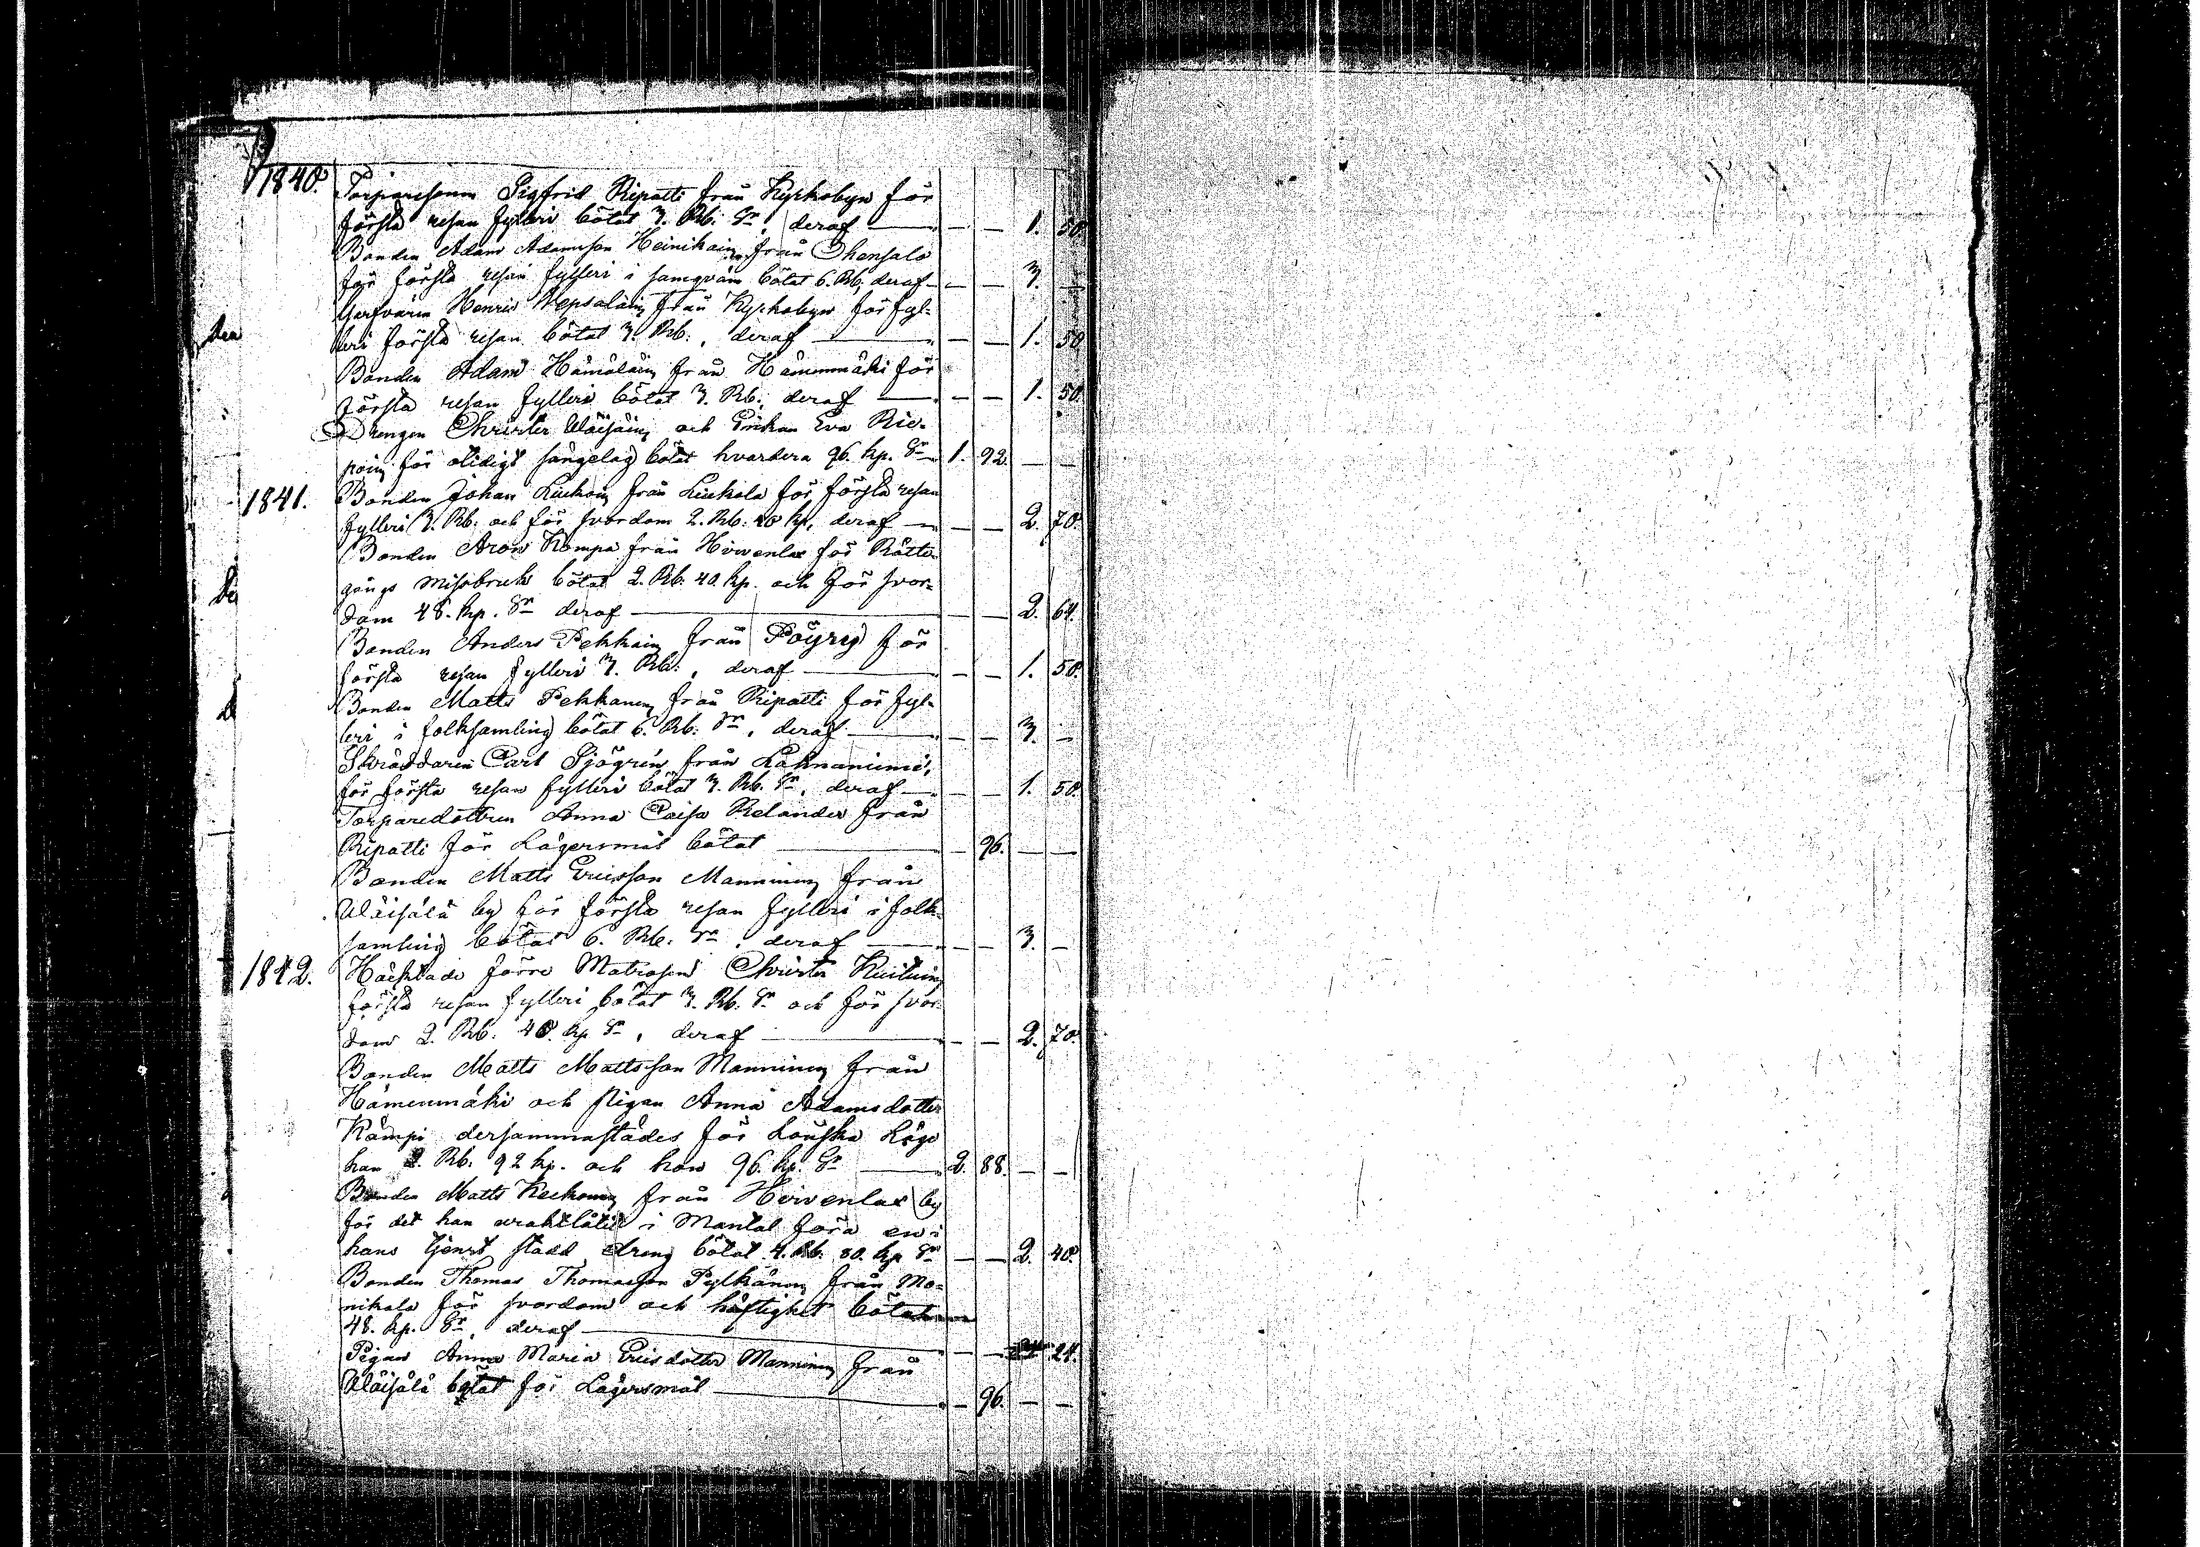 1840. Torparesonen Sigfrid Ripatti från Kyrkobyn för
första resan fylleri bötat 3. Rb. Sr, deraf — — — 1. 50.
Bonden Adam Adamsson Heinikain från Ihensalo
för första resan fylleri i samqväm bötat 6. Rb. deraf — — 3. —
Garfvarin Henric Wepsaläin från Kyrkobyn för fyl-
leri första resan bötat 3. Rb., deraf — — — 1. 50.
Bonden Adam Hämäläin från Hämenmäki för
första resan fylleri bötat 3. Rb. deraf — — — 1. 50.
Drengen Christer Wäisäin och Enkan Eva Rie-
poin för otidigt sängelag bötat hvardera 96. kp. Sr 1. 92. — —
1841. Bonden Johan Liukoin från Liukola för första resan
fylleri 3. Rb. och för svordom 2. Rb. 40 kp. deraf — — — 2. 70.
Bonden Aron Kompa från Hirvenlax för Rätte-
gångs missbruk bötat 2. Rb. 40. kp. och för svor-
dom 48. kp. Sr deraf — — — 2. 64.
Bonden Anders Pekkain från Pöyry för
första resan fylleri 3. Rb., deraf — — — 1. 50.
Bonden Matts Pekkanen från Ripatti för fyl-
leri i folksamling bötat 6. Rb. Sr, deraf — — — 3. —
Skräddaren Carl Sjögrén från Lahnaniemi,
för första resan fylleri bötat 3. Rb. Sr, deraf — — — 1. 50.
Torparedottren Anna Caisa Relander från
Ripatti för Lägersmål bötat — — 96. — —
Bonden Matts Ericsson Manninen från
Wäisälä by för första resan fylleri i folk-
samling bötat 6. Rb. Sr, deraf — — — 3. —
1842. Häcktade förre Matrosen Christer
första resan fylleri bötat 3. Rb. Sr och för svor-
dom 2. Rb. 40. kp Sr, deraf — — — 2. 70.
Bonden Matts Mattsson Manninen från
Hämenmäki och pigan Anna Adamsdotter
Kämpi dersammastädes för Lönska Läge
han 1. Rb. 92 kp. och hon 96. kp. Sr — 2. 88. — —
Bonden Matts från Hirvenlax by
för det han uraktlåtit i Mantal föra en i
hans tjenst stadd dreng bötat 4. Rb. 80. kp Sr — — 2. 40.
Bonden Thomas Thomasson Pylkänen från Mo-
nikala för svordom och häftighet bötat
48. kp. Sr, deraf — — — 24.
Pigan Anna Maria Ericsdotter Manninen från
Wäisälä bötat för Lägersmål — — 96. — —